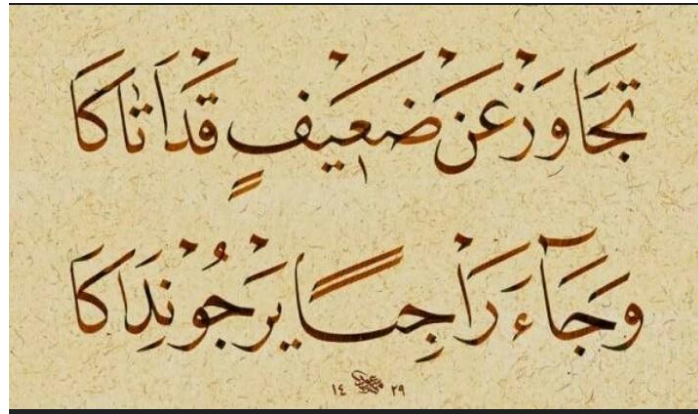 تَجَاوَزْ عَنْ ضَعِيفٍ قَدْ أَتَاكَا
وَجَآءَ رَاجِيًا يَرْجُو نِدَاكَا
١٤ ٢٩